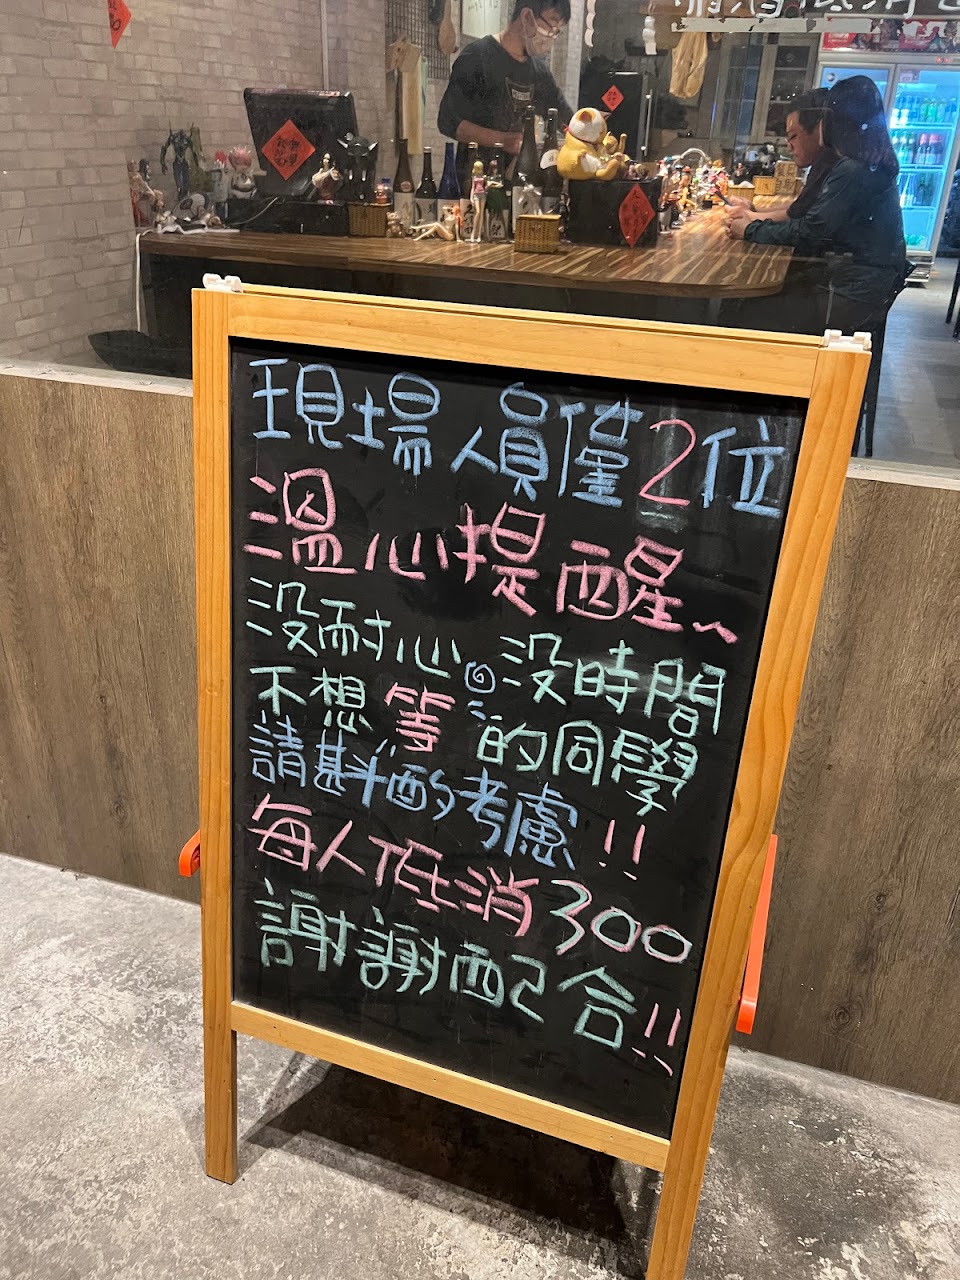 現場人員僅2位
溫心提醒
没耐心 没時間
不想等 的同學
請斟酌考慮!!
每人低消300
謝謝配合!!